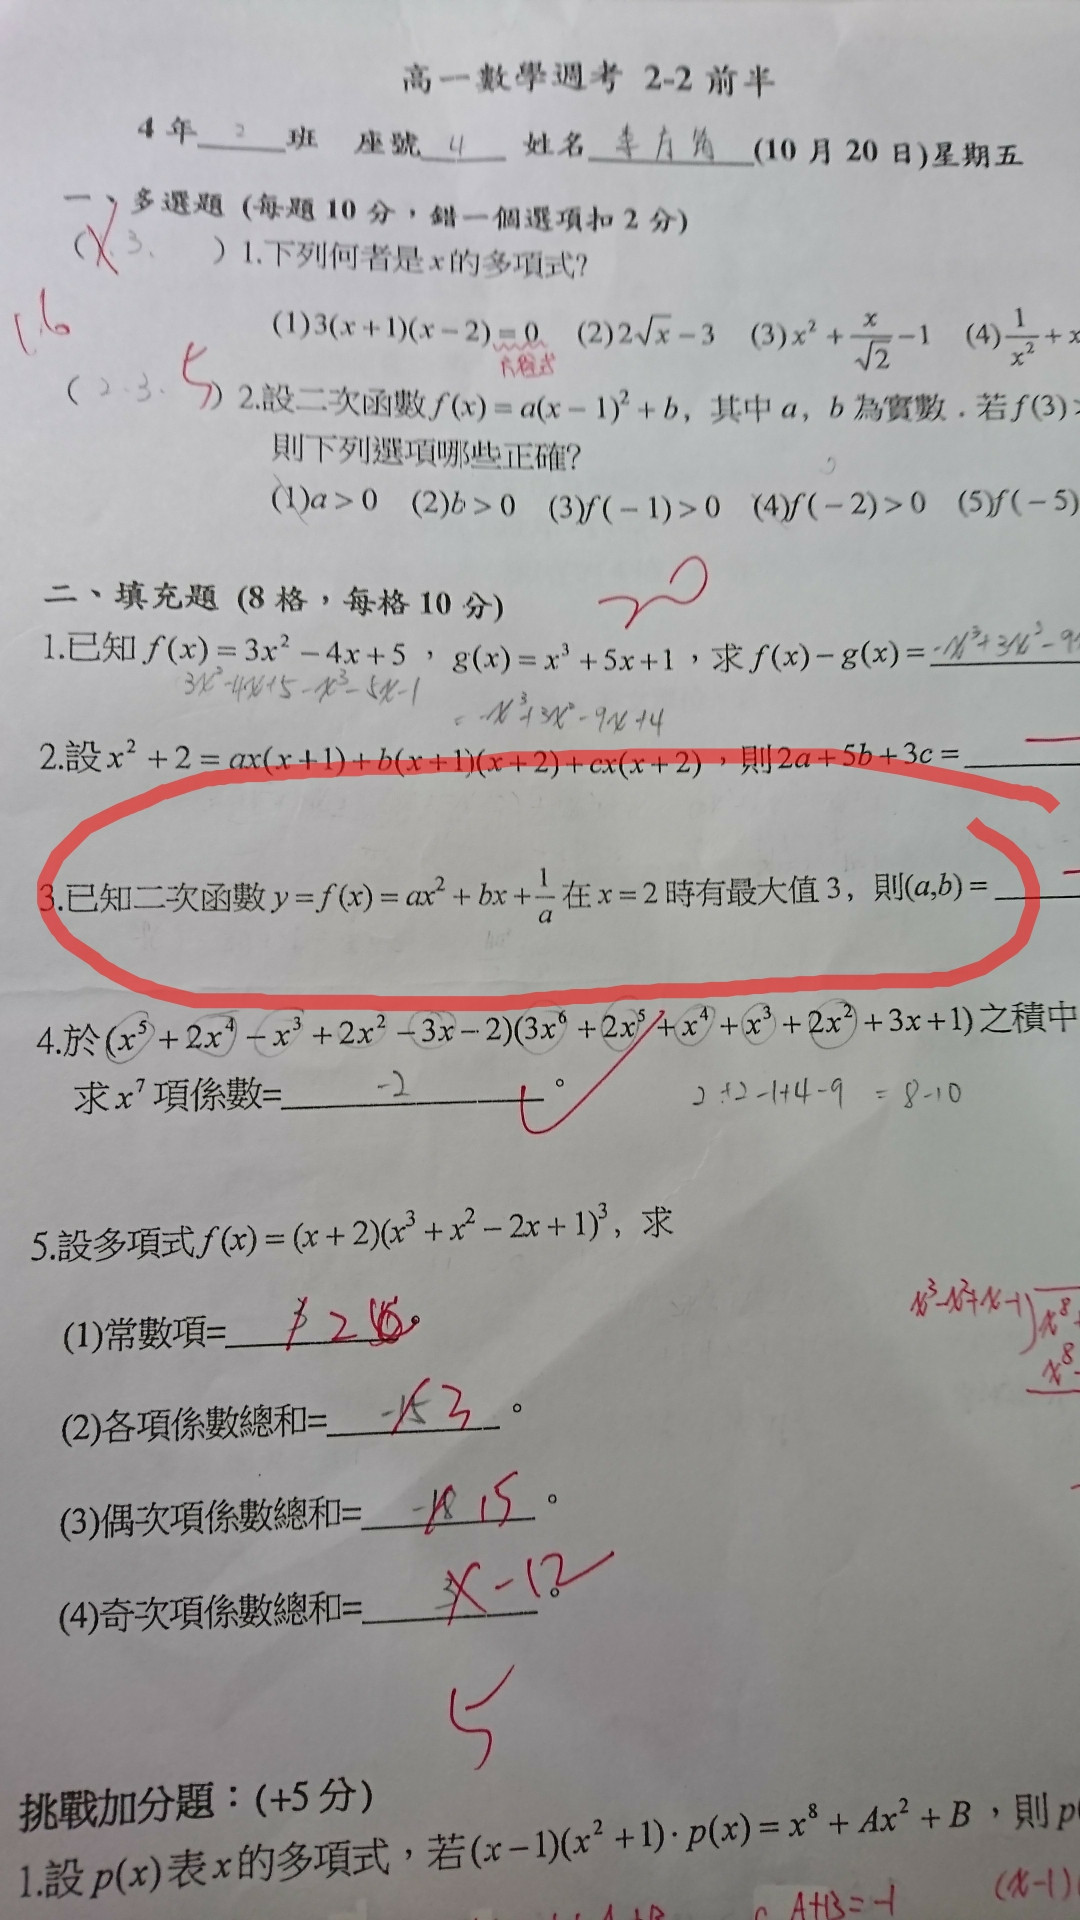 高一數學週考 2-2 前半
4年 2 班 座號 4 姓名 (10月20日)星期五
一、多選題 (每題10分，錯一個選項扣2分)
( 3. ) 1.下列何者是x的多項式?
1.6
(1)3(x+1)(x-2)=0 (2)2√x-3 (3)x²+x/√2-1 (4)1/x²+x
方程式
( 2.3. 5 ) 2.設二次函數f(x)=a(x-1)²+b, 其中a, b為實數.若f(3)>
則下列選項哪些正確?
(1)a>0 (2)b>0 (3)f(-1)>0 (4)f(-2)>0 (5)f(-5)
20
二、填充題 (8格，每格10分)
1.已知f(x)=3x²-4x+5，g(x)=x³+5x+1，求f(x)-g(x)=-x³+3x²-9x
3x²-4x+5-x³-5x-1
=-x³+3x²-9x+4
2.設x²+2=ax(x+1)+b(x+1)(x+2)+cx(x+2)，則2a+5b+3c=
3.已知二次函數y=f(x)=ax²+bx+1/a在x=2時有最大值3, 則(a,b)=
4.於(x⁵+2x⁴-x³+2x²-3x-2)(3x⁶+2x⁵+x⁴+x³+2x²+3x+1)之積中
求x⁷項係數= -2 。 2+2-1+4-9 = 8-10
5.設多項式f(x)=(x+2)(x³+x²-2x+1)³, 求
x³-x²+x-1 x⁸
(1)常數項= 2 。
x⁸-
(2)各項係數總和= -15 3 。
(3)偶次項係數總和= -18 15 。
(4)奇次項係數總和= -12 。
5
挑戰加分題：(+5分)
1.設p(x)表x的多項式，若(x-1)(x²+1)·p(x)=x⁸+Ax²+B，則p
(x-1)
A+B=-1